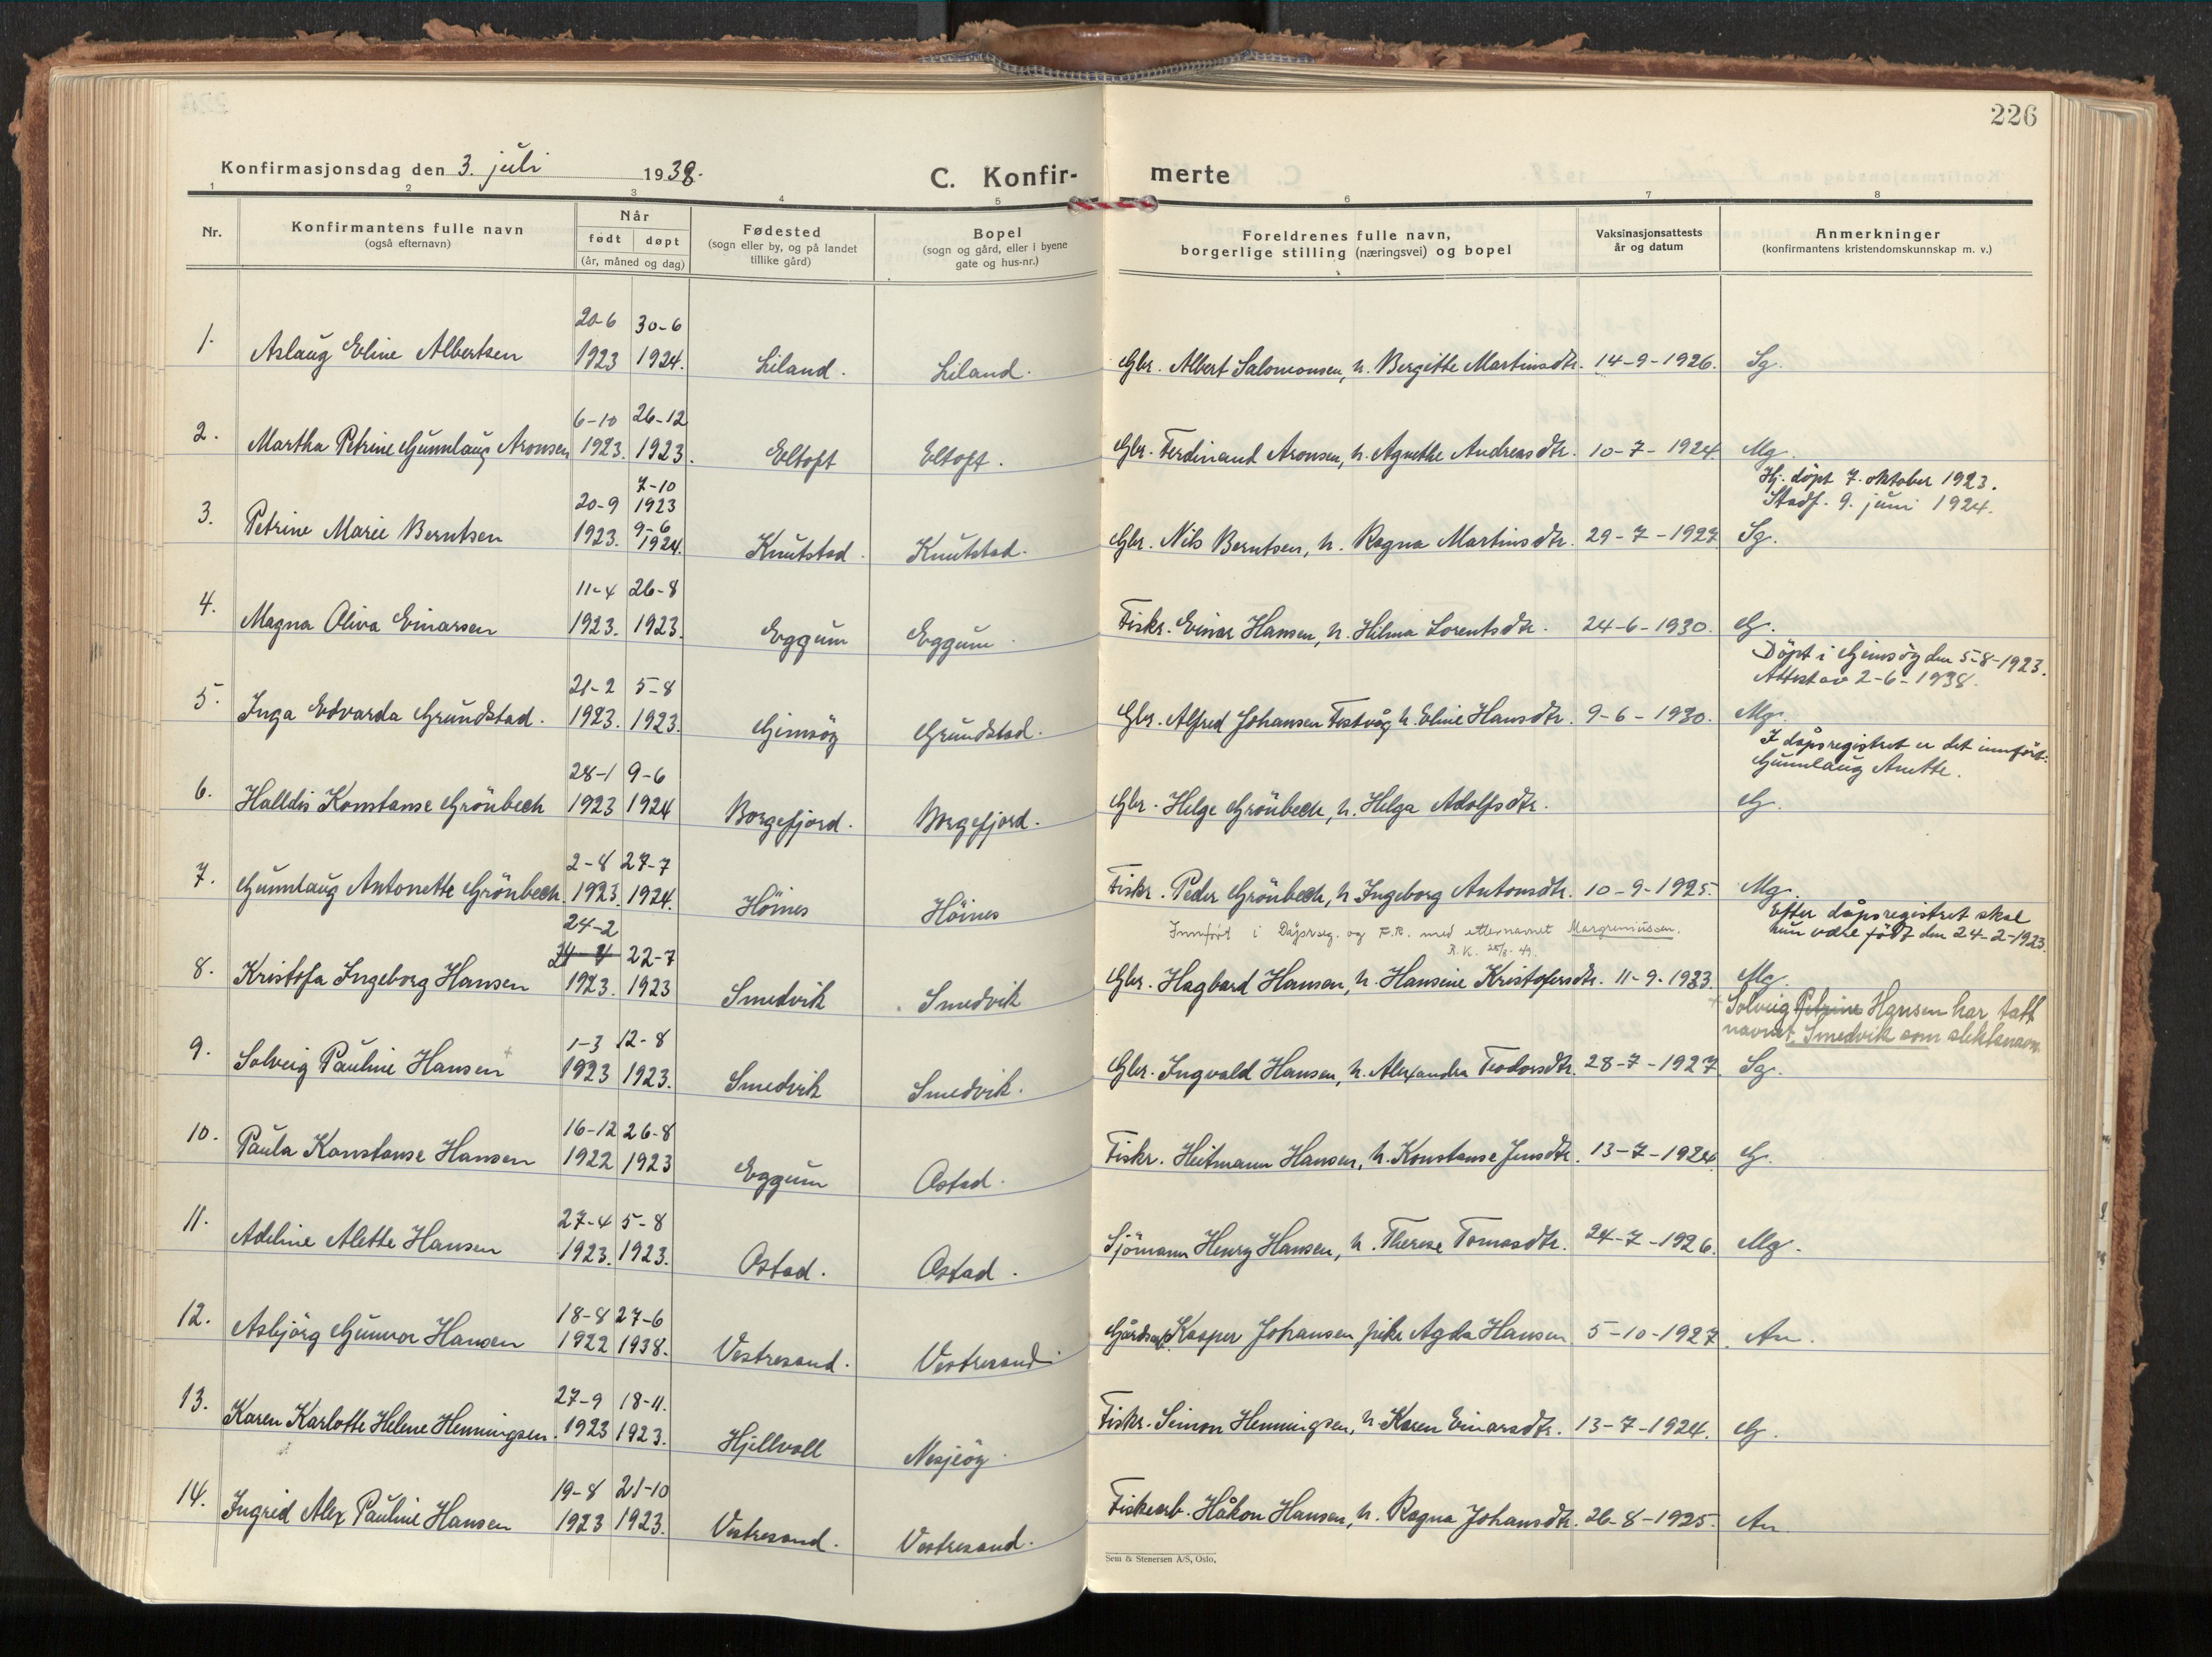 226
Konfirmasjonsdag den 3. juli 1938.
C. Konfir- merte
1 2 3 4 5 6 7 8
Nr.
Konfirmantens fulle navn
(også efternavn)
Når
født døpt
(år, måned og dag)
Fødested
(sogn eller by, og på landet
tillike gård)
Bopel
(sogn og gård, eller i byene
gate og hus-nr.)
Foreldrenes fulle navn,
borgerlige stilling (næringsvei) og bopel
Vaksinasjonsattests
år og datum
Anmerkninger
(konfirmantens kristendomskunnskap m. v.)
20-6 30-6
1. Aslaug Eline Albertsen 1923 1924. Liland. Liland. Gbr. Albert Salomonsen, h. Bergitte Martinsdtr. 14-9-1926. Sg.
6-10 26-12
2. Martha Petrine Gunnlaug Aronsen 1923. 1923. Eltoft Eltoft. Gbr. Ferdinand Aronsen, h. Agnethe Andreasdtr. 10-7-1924. Mg.
7-10 Hj. døpt 7. oktober 1923.
20-9 1923 Stadf. 9. juni 1924.
9-6
3. Petrine Marie Berntsen 1923. 1924. Knutstad. Knutstad. Gbr. Nils Berntsen, h. Ragna Martinsdtr. 29-7-1927 Sg.
11-4 26-8
4. Magna Oliva Einarsen 1923. 1923. Eggum Eggum. Fiskr. Einar Hansen, h. Hilma Lorentsdtr. 24-6-1930. G.
Döpt i Gimsöy den 5-8-1923.
21-2 5-8 Attest av 2-6-1938.
5. Inga Edvarda Grundstad. 1923. 1923. Gimsöy Grundstad. Gbr. Alfred Johansen Festvåg, h. Eline Hansdtr. 9-6-1930. Mg.
I dåpsregistret er det innført:
28-1 9-6 Gunnlaug Anette.
6. Halldis Konstanse Grönbech 1923 1924 Borgefjord. Borgefjord. Gbr. Helge Grönbech, h. Helga Adolfsdtr. G.
2-8 27-7
7. Gunnlaug Antonette Grönbech. 1923. 1924. Höines Höines Fiskr. Peder Grönbech, h. Ingeborg Antonsdtr. 10-9-1925. Mg.
Innført i Dåpsreg. og F.R. med etternavnet Margremiissen.
Efter dåpsregistret skal
hun være født den 24-2-1923.
24-2
22-7
8. Kristofa Ingeborg Hansen 1923. 1923 Smedvik Smedvik Gbr. Hagbard Hansen, h. Hansine Kristofersdtr. 11-9-1923. Mg.
+ Solveig Petrine Hansen har tatt
navnet Smedvik som slektsnavn
1-3 12-8
9. Solveig Pauline Hansen + 1923 1923. Smedvik Smedvik. Gbr. Ingvald Hansen, h. Alexandra Teodorsdtr. 28-7-1927 Sg.
16-12 26-8
10. Paula Konstanse Hansen 1922 1923 Eggum Ostad. Fiskr. Heitmann Hansen, h. Konstanse Jensdtr. 13-7-1924. G.
27-4 5-8
11. Adeline Alette Hansen 1923. 1923. Ostad. Ostad. Sjömann Henry Hansen, h. Therese Tomasdtr. 24-7-1926. Mg.
18-8 27-6
12. Asbjörg Gunvor Hansen 1922 1938. Vestresand. Vestresand Kasper Johansen pike Agda Hansen 5-10-1927. An.
27-9 18-11.
13. Karen Karlotte Helene Henningsen. 1923 1923. Hjellvoll Nesjeöy. Fiskr. Simon Henningsen, h. Karen Einarsdtr. 13-7-1924. G.
19-8 21-10
14. Ingrid Alex Pauline Hansen 1923 1923. Vestresand. Vestresand. Fiskearb. Håkon Hansen, h. Ragna Johansdtr. 26-8-1925. An
Sem & Stenersen A/S, Oslo.